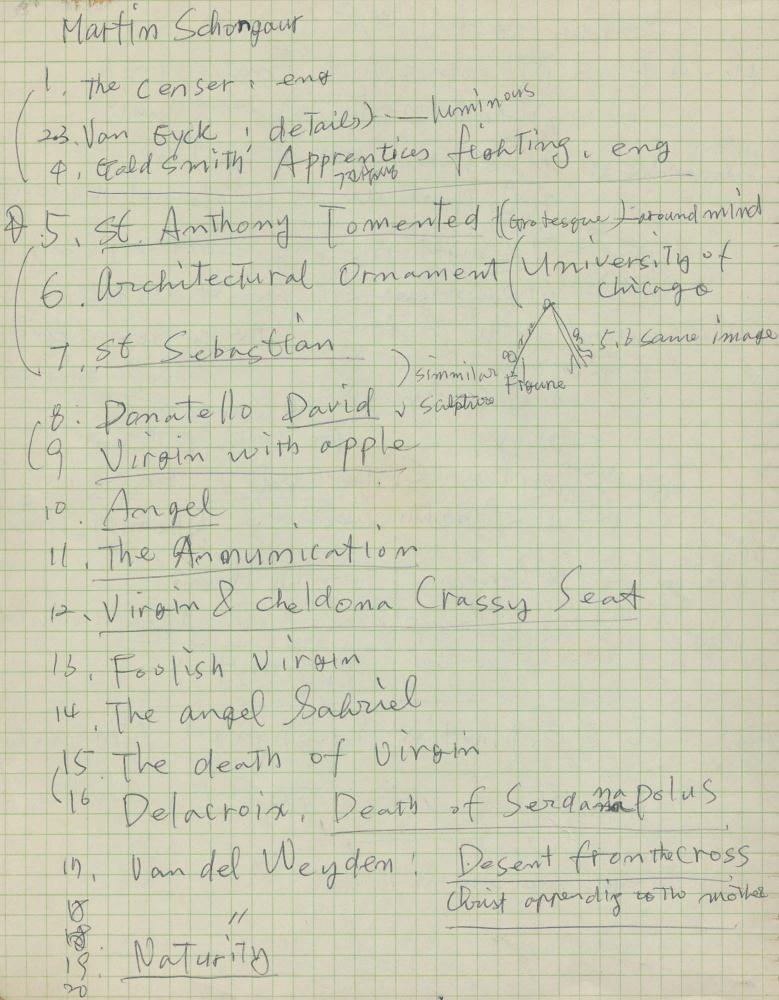 Martin Schongaur
1. The Censer, eng
2,3. Van Eyck, details) — luminous
4. Gold Smith Apprentices fighting, eng
5. St. Anthony Tomented ((Grotesque) — around mind
6. Architectural Ornament (University of
chicago
7. St Sebastian
5,6 same image
) simmilar
Figure
8. Donatello David
sculpture
9 Virgin with apple
10. Angel
11. The Annunication
12. Virgin & cheldona Crassy Seat
13. Foolish Virgin
14. The angel Gabriel
15 The death of Virgin
16 Delacroix. Death of Serdanapolus
17. Van del Weyden: Desent from the Cross
Christ appending to the mother
"
19. Naturity
20